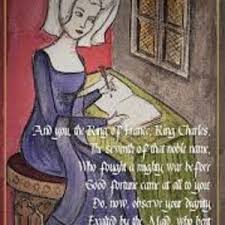 And you, the King of France, King Charles,
The seventh of that noble name,
Who fought a mighty war before
Good fortune came at all to you:
Do, now, observe your dignity
Exalted by the Maid, who bent